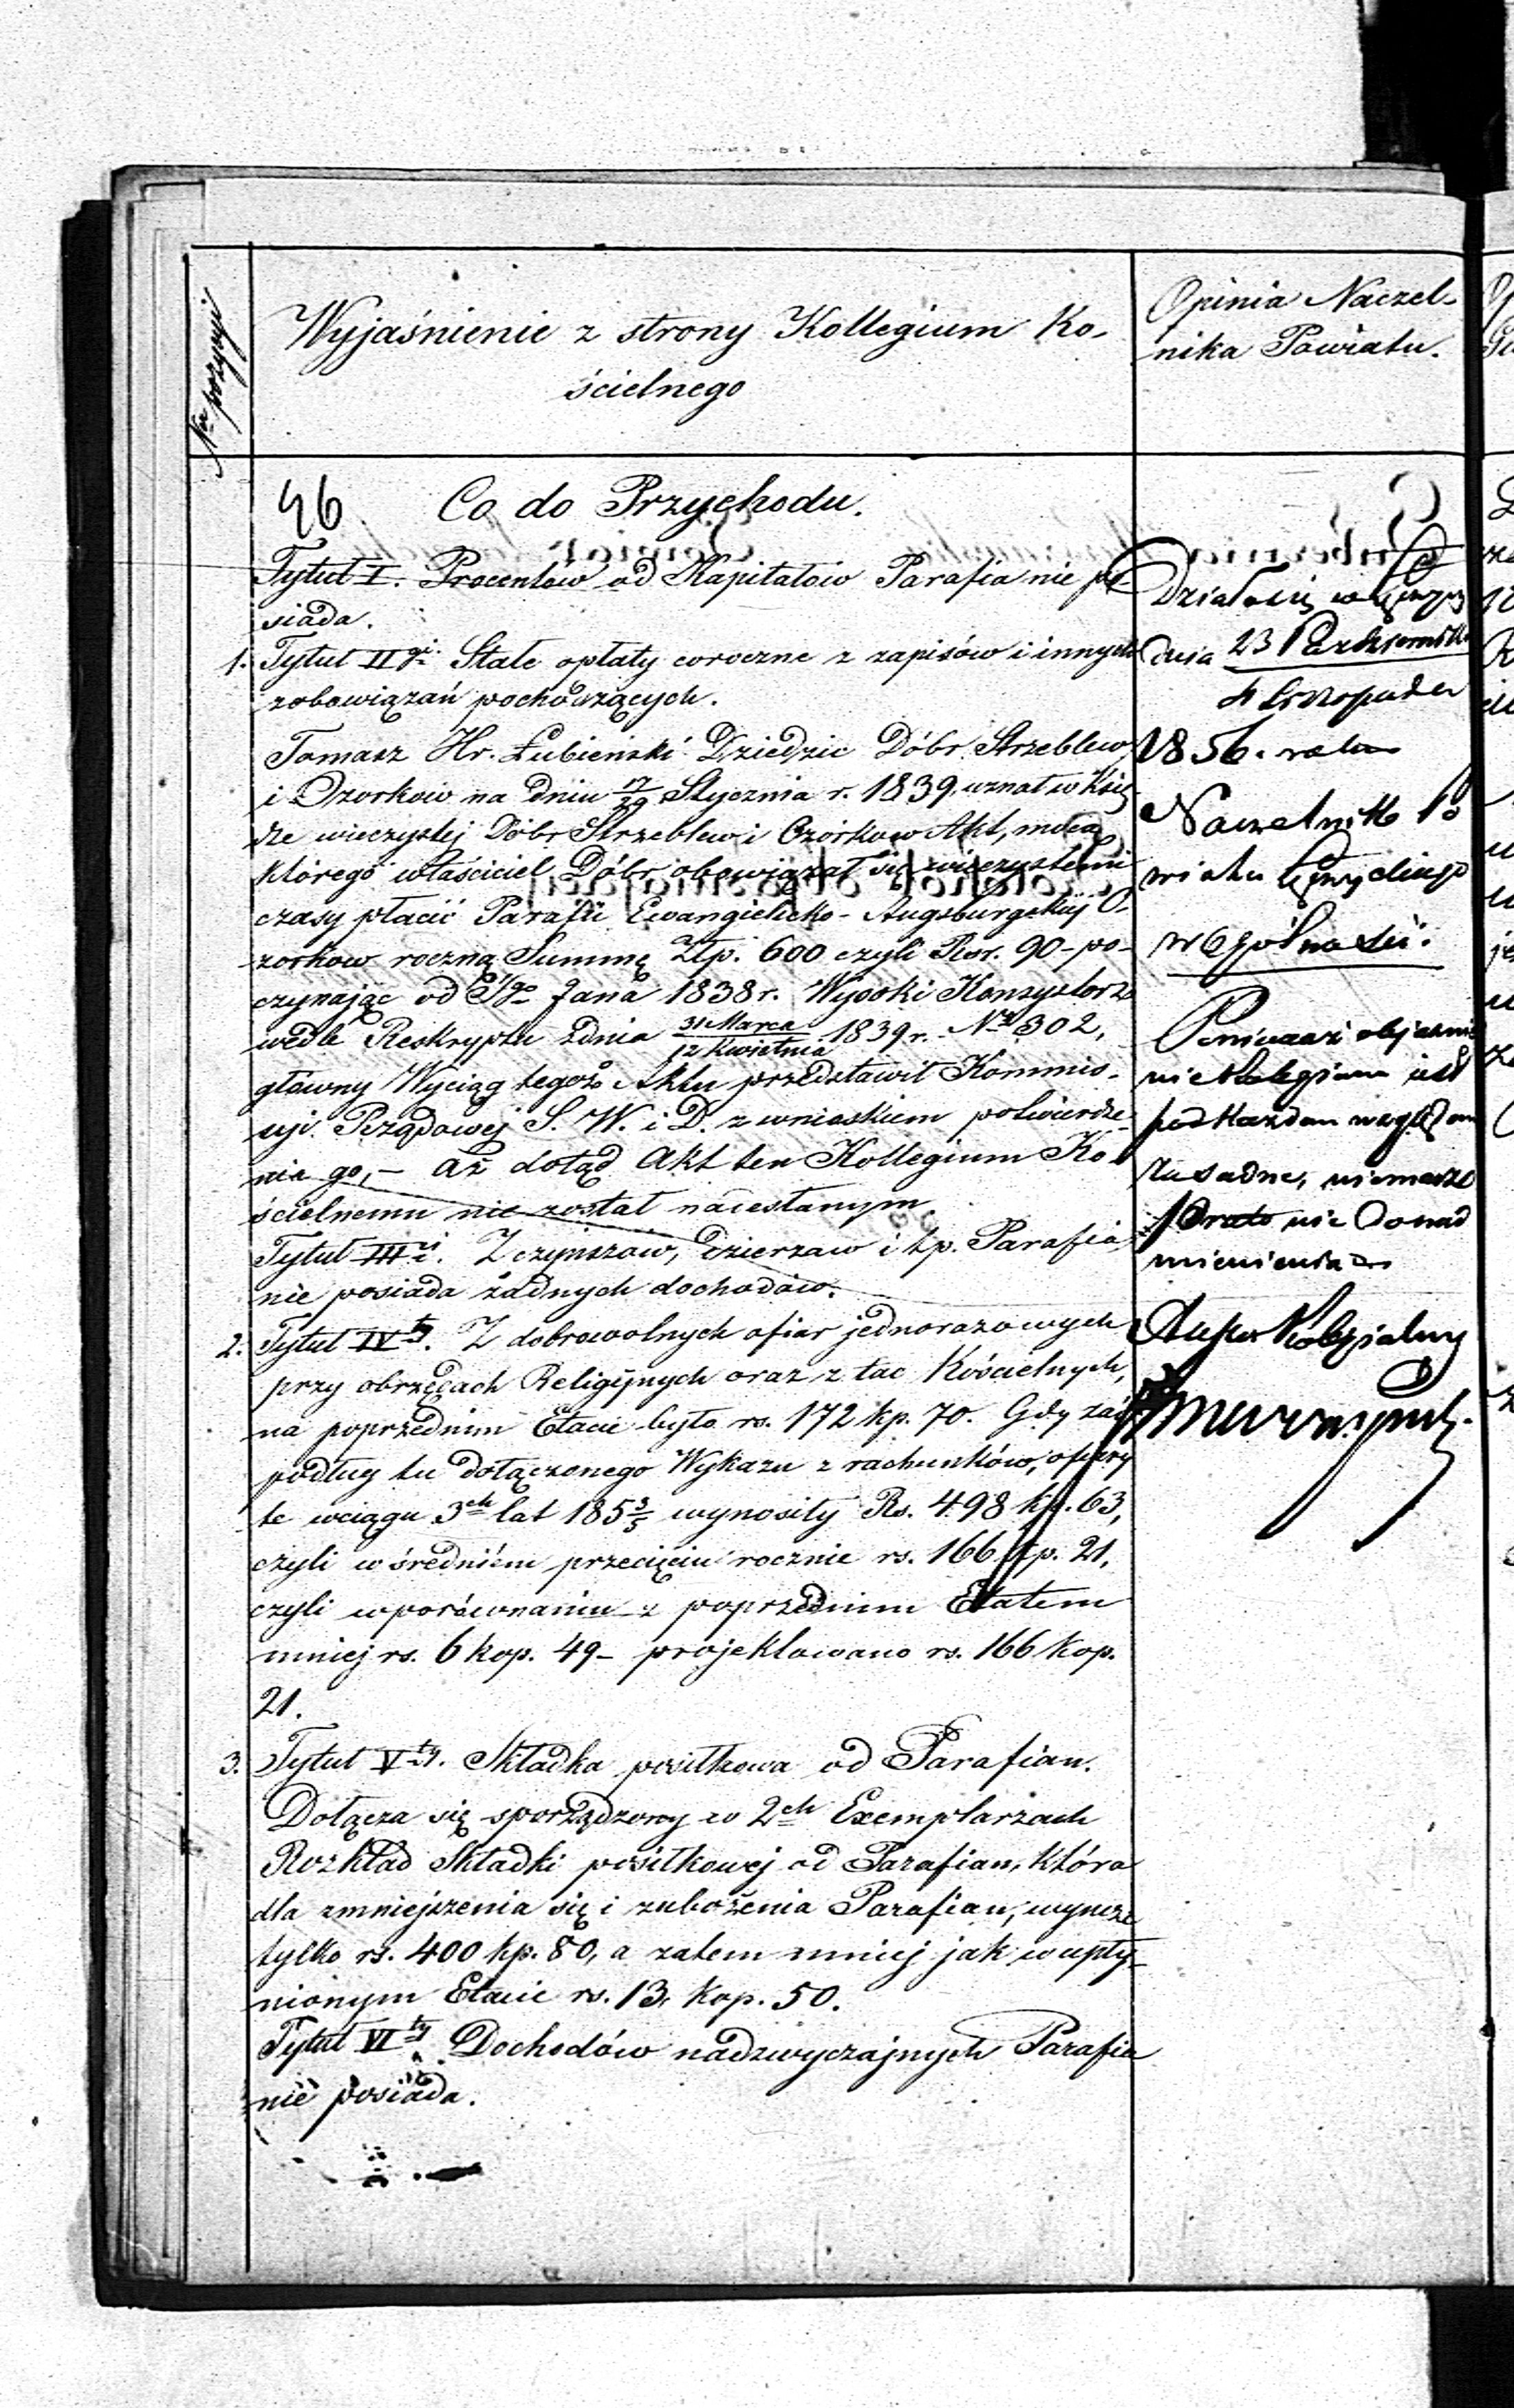 Nr pozycyi
Wyjaśnienie z strony Kollegium Ko-
ścielnego
Opinia Naczel-
nika Powiatu.
46
Co do Przychodu.
Tytuł I. Procentów od Kapitałów Parafia nie po-
siada.
1. Tytuł II gi. Stałe opłaty coroczne z zapisów i innych
zobowiązań pochodzących.
Tomasz Hr. Łubieński Dziedzic Dóbr Strzeblew
i Ozorkow na dniu 17/29 Stycznia r. 1839. uznał w Księ-
dze wieczystej Dóbr Strzeblew i Ozórkow Akt, mocą
którego właściciel Dóbr obowiązał się wieczystemi
czasy płacić Parafii Ewangielicko-Augsburgskiej O-
zorkow roczną Summę Złp. 600 czyli Rsr. 90 - po-
czynając od Sgo Jana 1838 r. Wysoki Konsystorz
wedle Reskryptu z dnia 31 Marca/12 Kwietnia 1839 r. No 302,
główny Wyciąg tegoż Aktu przedstawił Kommis-
syi Rządowej S. W. i D. z wnioskiem potwierdze-
nia go, - aż dotąd Akt ten Kollegium Ko-
ścielnemu nie został nadesłanym.
Tytuł III ci. Z czynszów, dzierzaw i t.p. Parafia
nie posiada żadnych dochodów.
2. Tytuł IV ty. Z dobrowolnych ofiar jednorazowych
przy obrzędach Religijnych oraz z tac Kościelnych,
na poprzednim Etacie było rs. 172 kp. 70. Gdy zaś
podług tu dołączonego Wykazu z rachunków, ofiary
te wciągu 3ch lat 185 3/5 wynosiły Rs. 498 kp. 63,
czyli w średniém przecięciu rocznie rs. 166 kp. 21,
czyli w porównaniu z poprzednim Etatem
mniej rs. 6 kop. 49 - projektowano rs. 166 kop.
21.
3. Tytuł V ty. Składka posiłkowa od Parafian.
Dołącza się sporządzony w 2ch Exemplarzach
Rozkład Składki posiłkowej od Parafian, która
dla zmniejszenia się i zubożenia Parafian, wynosi
tylko rs. 400 kp. 80, a zatem mniej jak w upły-
nionym Etacie rs. 13, kop. 50.
Tytuł VI ty. Dochodów nadzwyczajnych Parafia
nie posiada.
Działo się w Łęczycy
dnia 23 Października
4 Listopada
1856. roku
Naczelnik Po
wiatu Łęczyckiego
w Ogólności.
Ponieważ objaśnie
nie Kollegium jest
pod każdem względem
zasadne, niemasz
przeto nic do nad
mienienia